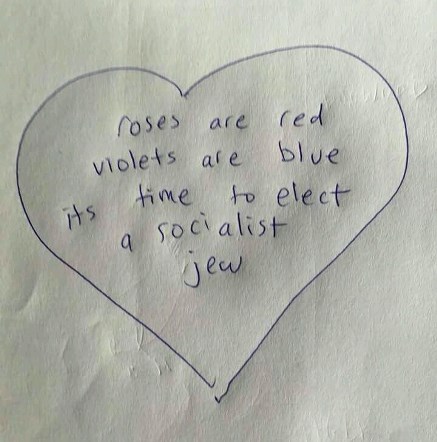 roses are red
violets are blue
its time to elect
a socialist
jew